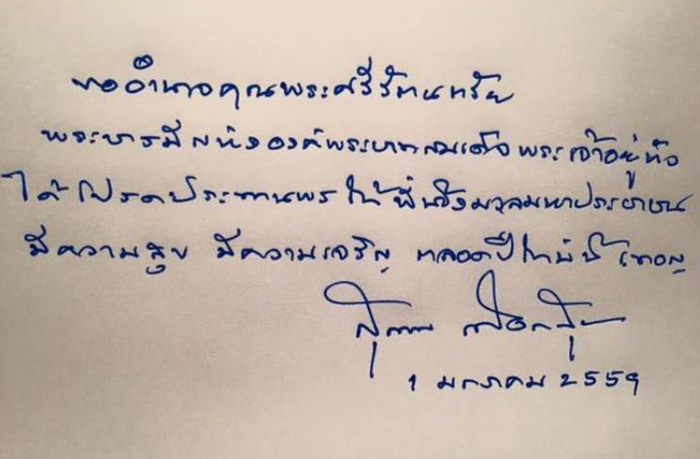 ขออำนาจคุณพระศรีรัตนตรัย
พระบารมีแห่งองค์พระบาทสมเด็จพระเจ้าอยู่หัว
ได้โปรดประทานพรให้พี่น้องมวลมหาประชาชน
มีความสุข มีความเจริญ ตลอดปีใหม่นี้เทอญ
1 มกราคม 2559